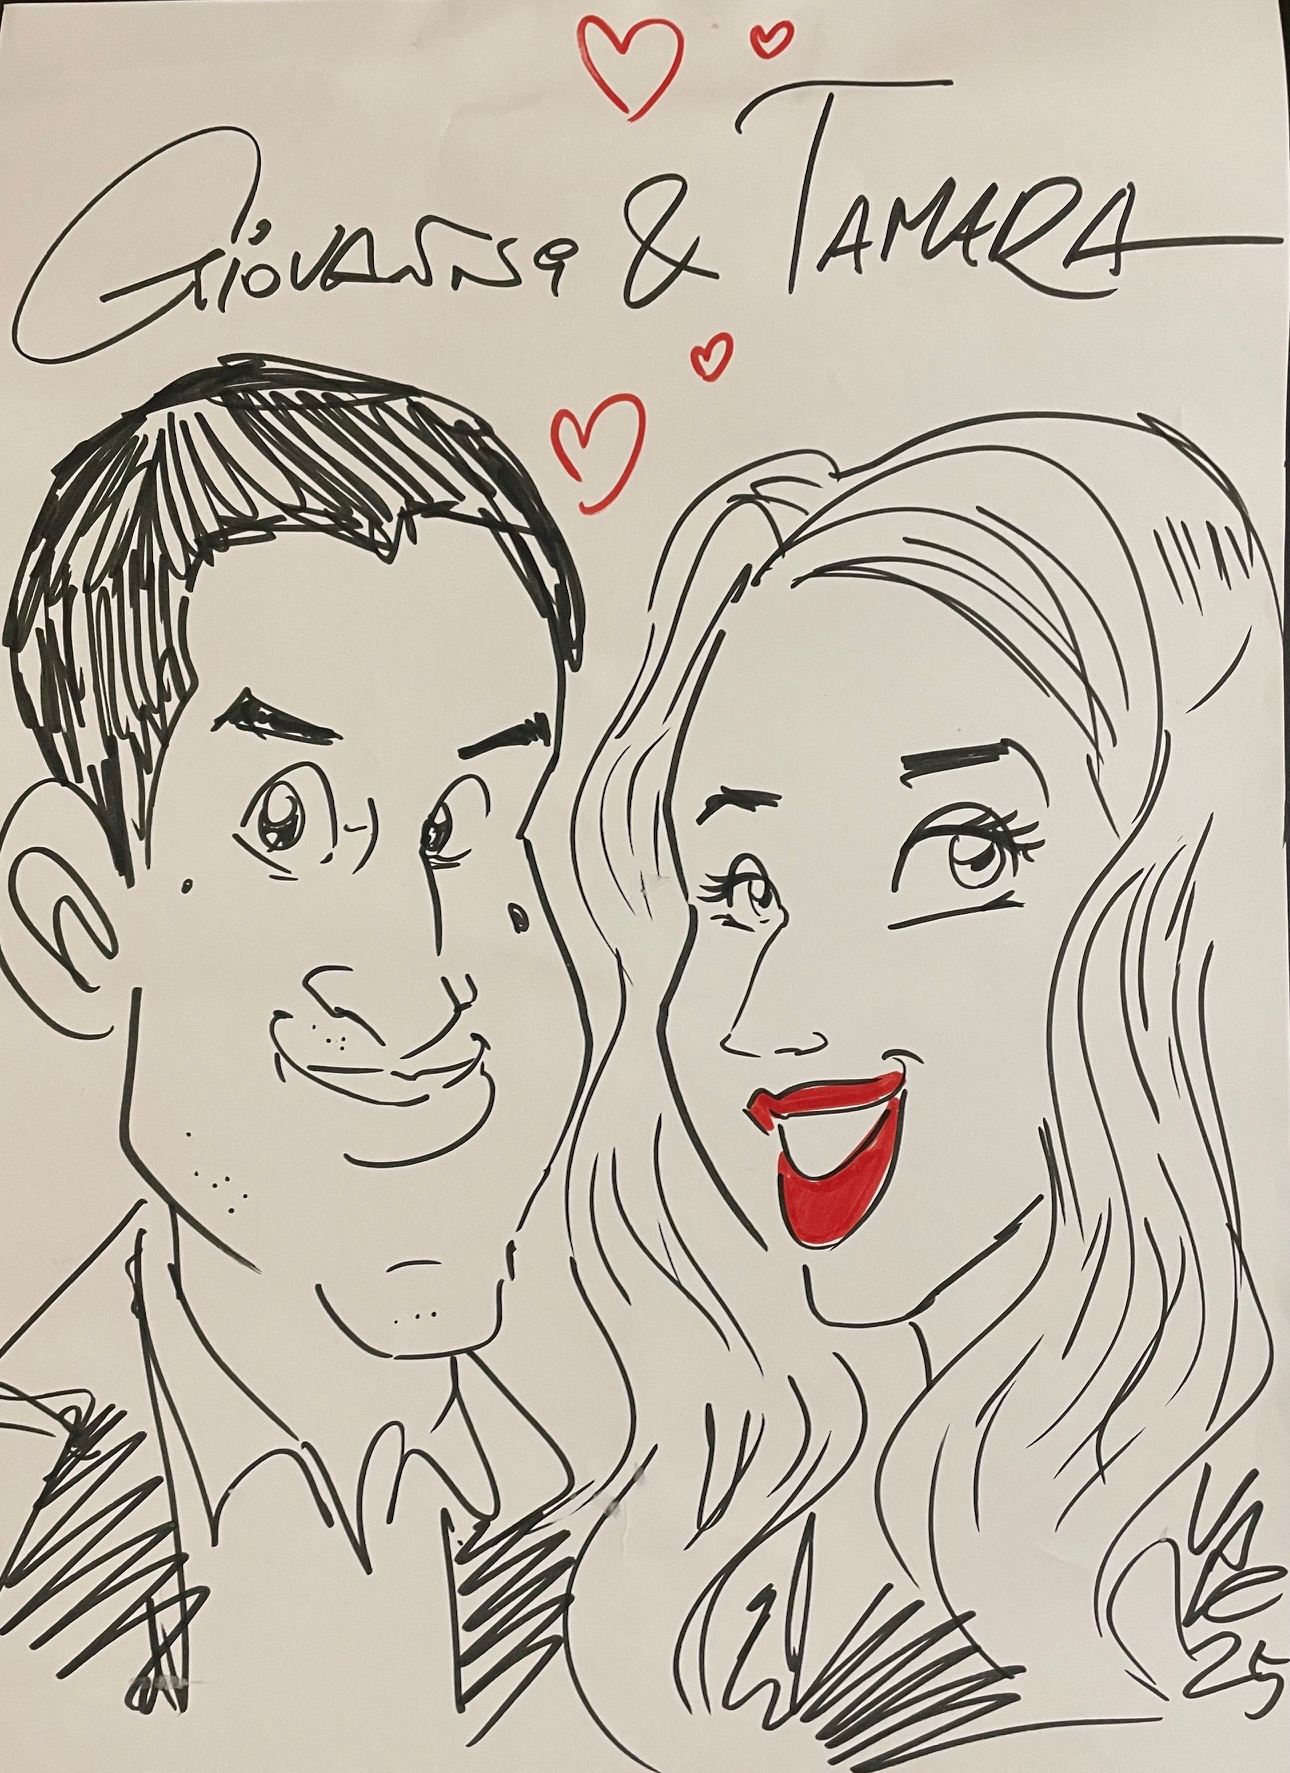 Giovanni & Tamara
25